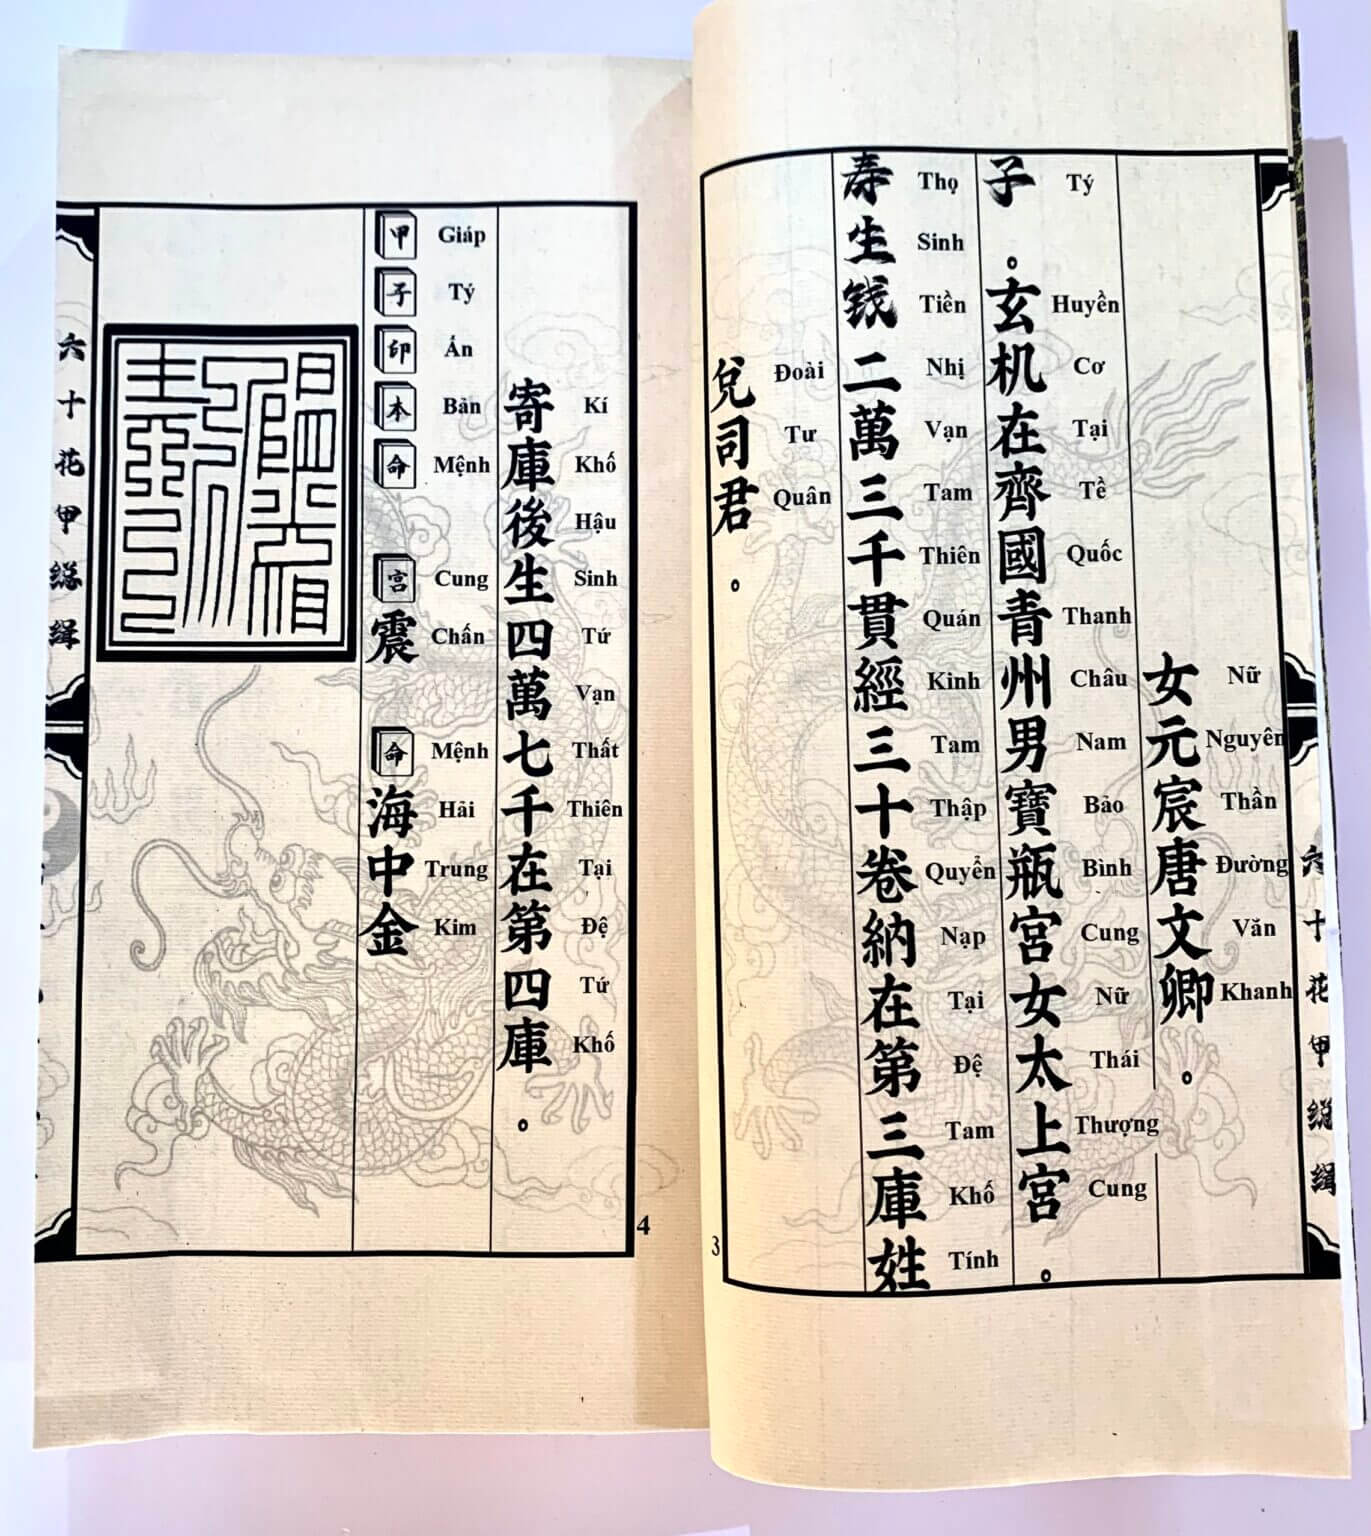 六十花甲緫緝
女元宸唐文卿。
Nữ Nguyên Thần Đường Văn Khanh
子。玄机在齊國青州男寶瓶宮女太上宮。
Tý Huyền Cơ Tại Tề Quốc Thanh Châu Nam Bảo Bình Cung Nữ Thái Thượng Cung
寿生钱二萬三千貫經三十卷納在第三庫姓
Thọ Sinh Tiền Nhị Vạn Tam Thiên Quán Kinh Tam Thập Quyển Nạp Tại Đệ Tam Khố Tính
兌司君。
Đoài Tư Quân
3
寄庫後生四萬七千在第四庫。
Kí Khố Hậu Sinh Tứ Vạn Thất Thiên Tại Đệ Tứ Khố
甲子印本命 宮震 命海中金
Giáp Tý Ấn Bản Mệnh Cung Chấn Mệnh Hải Trung Kim
六十花甲緫緝
4